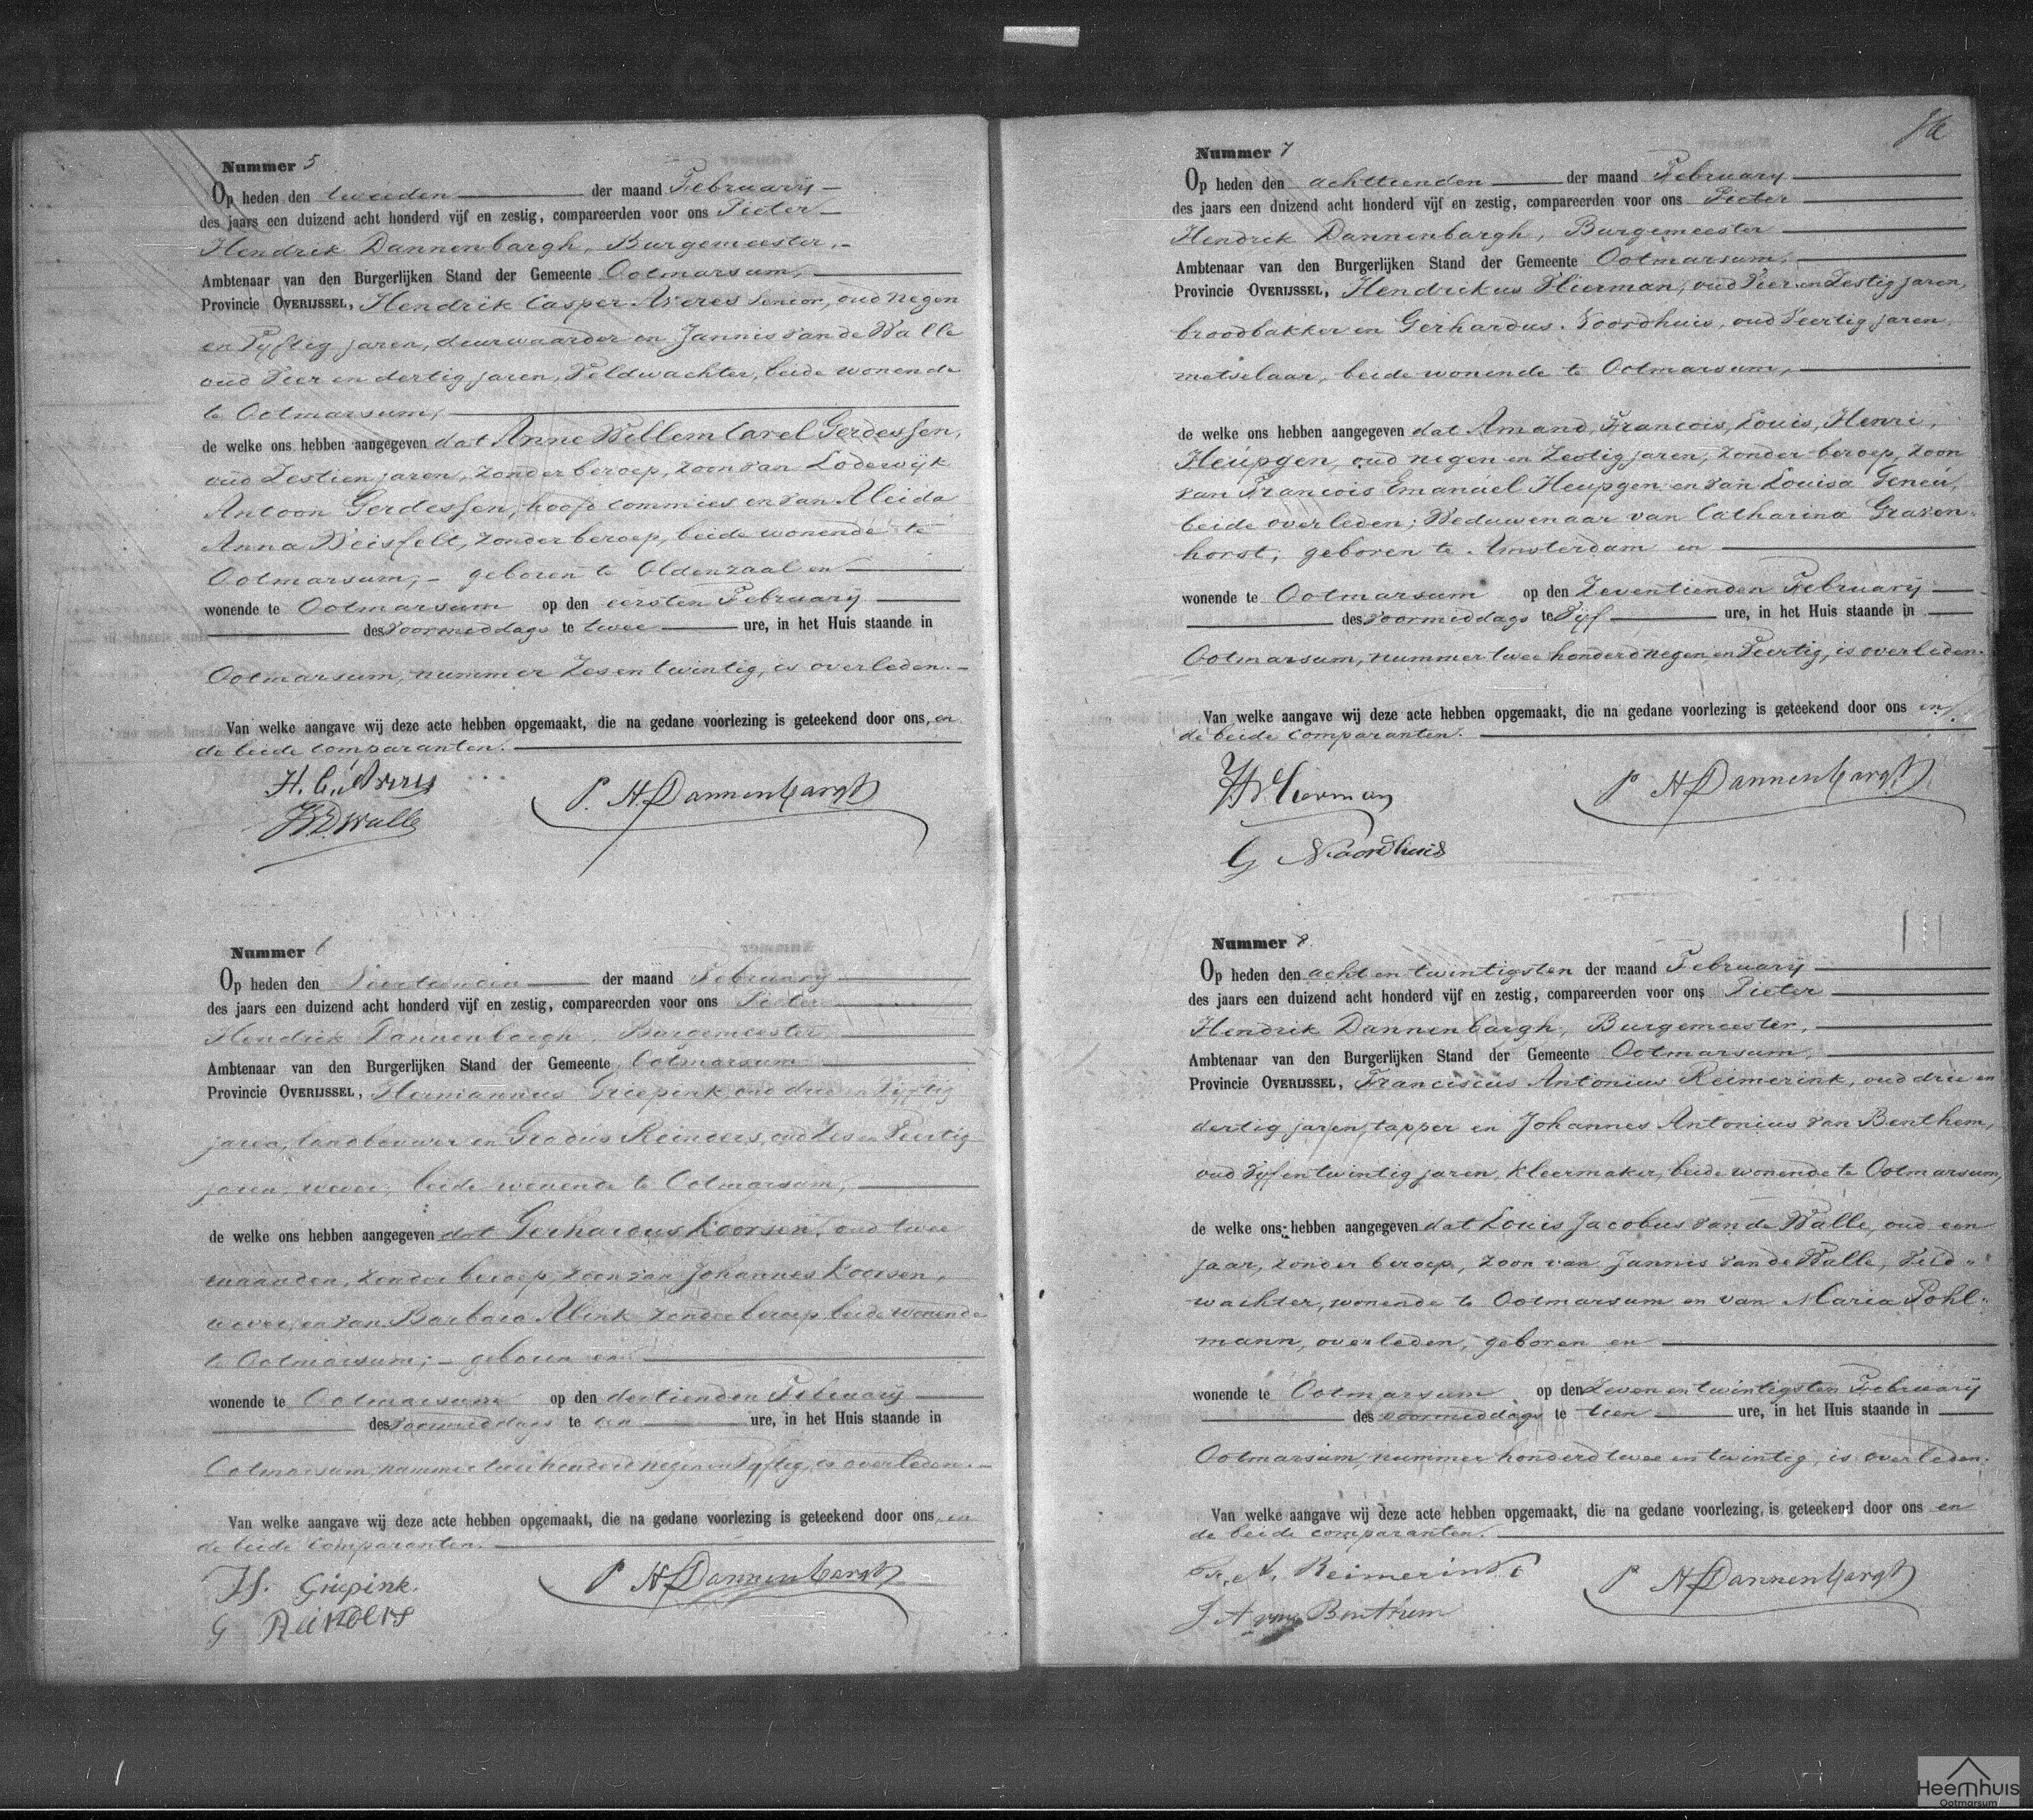 Nummer 5
Op heden den tweeden der maand February
des jaars een duizend acht honderd vijf en zestig, compareerden voor ons Pieter
Hendrik Dannenbargh, Burgemeester,
Ambtenaar van den Burgerlijken Stand der Gemeente Ootmarsum,
Provincie OVERIJSSEL, Hendrik Casper Averes Senior, oud negen
en Vyftig jaren, deurwaarder en Jannis van de Walle
oud Vier en dertig jaren, Veldwachter, beide wonende
te Ootmarsum,
de welke ons hebben aangegeven dat Anne Willem Carel Gerdessen,
oud Zestien jaren, zonder beroep, zoon van Lodewijk
Antoon Gerdessen, hoofd commies en van Aleida
Anna Weisfelt, zonder beroep, beide wonende te
Ootmarsum; geboren te Oldenzaal en
wonende te Ootmarsum op den eersten February
des voormiddags te twee ure, in het Huis staande in
Ootmarsum, nummer Zes en twintig, is overleden.
Van welke aangave wij deze acte hebben opgemaakt, die na gedane voorlezing is geteekend door ons, en
de beide comparanten.
H. C. Averes P. H Dannenbargh
JVD Walle
Nummer 6
Op heden den Veertienden der maand February
des jaars een duizend acht honderd vijf en zestig, compareerden voor ons Pieter
Hendrik Dannenbargh, Burgemeester
Ambtenaar van den Burgerlijken Stand der Gemeente Ootmarsum
Provincie OVERIJSSEL, Hermannus Griepink, oud drie en Vyftig
jaren, landbouwer en Gradus Reinders, oud Zes en Veertig
jaren, wever, beide wonende te Ootmarsum,
de welke ons hebben aangegeven dat Gerhardus Koorsen, oud twee
maanden, zonder beroep, zoon van Johannes Koorsen,
wever, en van Barbara Alink zonder beroep beide wonende
te Ootmarsum; geboren en
wonende te Ootmarsum op den dertienden February
des voormiddags te tien ure, in het Huis staande in
Ootmarsum, nummer twee honderd negen en Vyftig, is overleden.
Van welke aangave wij deze acte hebben opgemaakt, die na gedane voorlezing is geteekend door ons, en
de beide comparanten.
H. Griepink. P H Dannenbargh
G Reinders
Nummer 7
Op heden den achttienden der maand February
des jaars een duizend acht honderd vijf en zestig, compareerden voor ons Pieter
Hendrik Dannenbargh, Burgemeester
Ambtenaar van den Burgerlijken Stand der Gemeente Ootmarsum,
Provincie OVERIJSSEL, Hendrikus Hierman, oud Vier en Zestig jaren,
broodbakker en Gerhardus Noordhuis, oud Veertig jaren
metselaar, beide wonende te Ootmarsum,
de welke ons hebben aangegeven dat Amand, Francois, Louis, Henri,
Heupgen, oud negen en Zestig jaren, zonder beroep, zoon
van Francois Emanuel Heupgen en van Louisa Geneu,
beide overleden; Weduwenaar van Catharina Graven-
horst; geboren te Amsterdam en
wonende te Ootmarsum op den Zeventienden February
des voormiddags te Vyf ure, in het Huis staande in
Ootmarsum, nummer twee honderd negen en Veertig, is overleden.
Van welke aangave wij deze acte hebben opgemaakt, die na gedane voorlezing is geteekend door ons en
de beide comparanten.
H Hierman P H Dannenbargh
G Noordhuis
Nummer 8
Op heden den acht en twintigsten der maand February
des jaars een duizend acht honderd vijf en zestig, compareerden voor ons Pieter
Hendrik Dannenbargh, Burgemeester,
Ambtenaar van den Burgerlijken Stand der Gemeente Ootmarsum,
Provincie OVERIJSSEL, Franciscus Antonius Reimerink, oud drie en
dertig jaren, tapper en Johannes Antonius van Benthem,
oud Vyf en twintig jaren, kleermaker, beide wonende te Ootmarsum,
de welke ons hebben aangegeven dat Louis Jacobus van de Walle, oud een
jaar, zonder beroep, zoon van Jannis van de Walle, Veld-
wachter, wonende te Ootmarsum en van Maria Pohl-
mann, overleden, geboren en
wonende te Ootmarsum op den Zeven en twintigsten February
des voormiddags te tien ure, in het Huis staande in
Ootmarsum, nummer honderd twee en twintig, is overleden.
Van welke aangave wij deze acte hebben opgemaakt, die na gedane voorlezing, is geteekend door ons en
de beide comparanten.
Fr. A. Reimerink P H Dannenbargh
J A van Benthem
Heemhuis
Ootmarsum